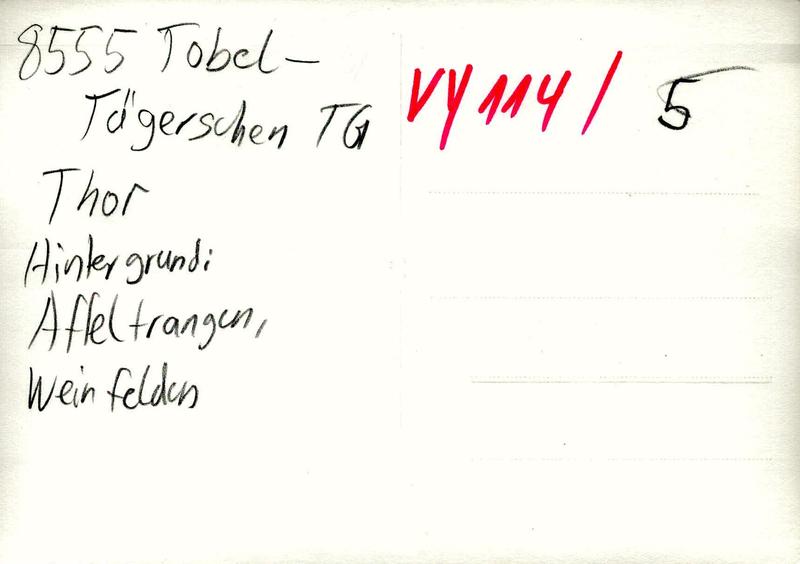 8555 Tobel-
Tägerschen TG
Thor
Hintergrund:
Affeltrangen,
Weinfelden
VY 114 / 5